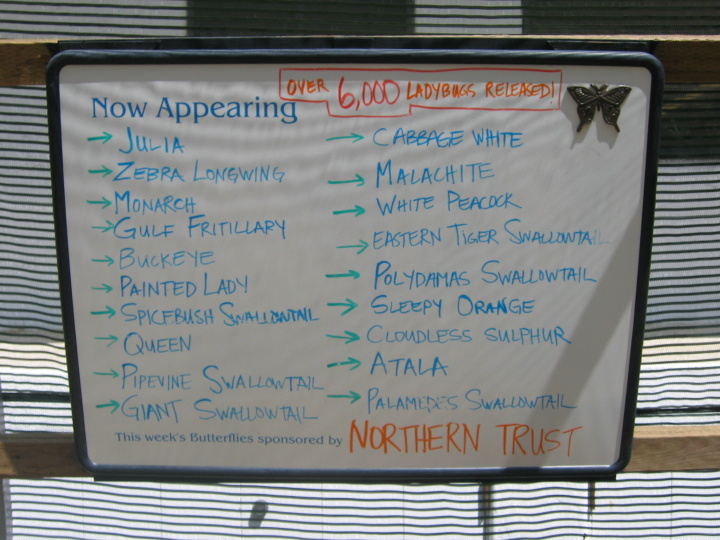 OVER 6,000 LADYBUGS RELEASED!
Now Appearing
→ JULIA
→ ZEBRA LONGWING
→ MONARCH
→ GULF FRITILLARY
→ BUCKEYE
→ PAINTED LADY
→ SPICEBUSH SWALLOWTAIL
→ QUEEN
→ PIPEVINE SWALLOWTAIL
→ GIANT SWALLOWTAIL
→ CABBAGE WHITE
→ MALACHITE
→ WHITE PEACOCK
→ EASTERN TIGER SWALLOWTAIL
→ POLYDAMAS SWALLOWTAIL
→ SLEEPY ORANGE
→ CLOUDLESS SULPHUR
→ ATALA
→ PALAMEDES SWALLOWTAIL
This week's Butterflies sponsored by NORTHERN TRUST